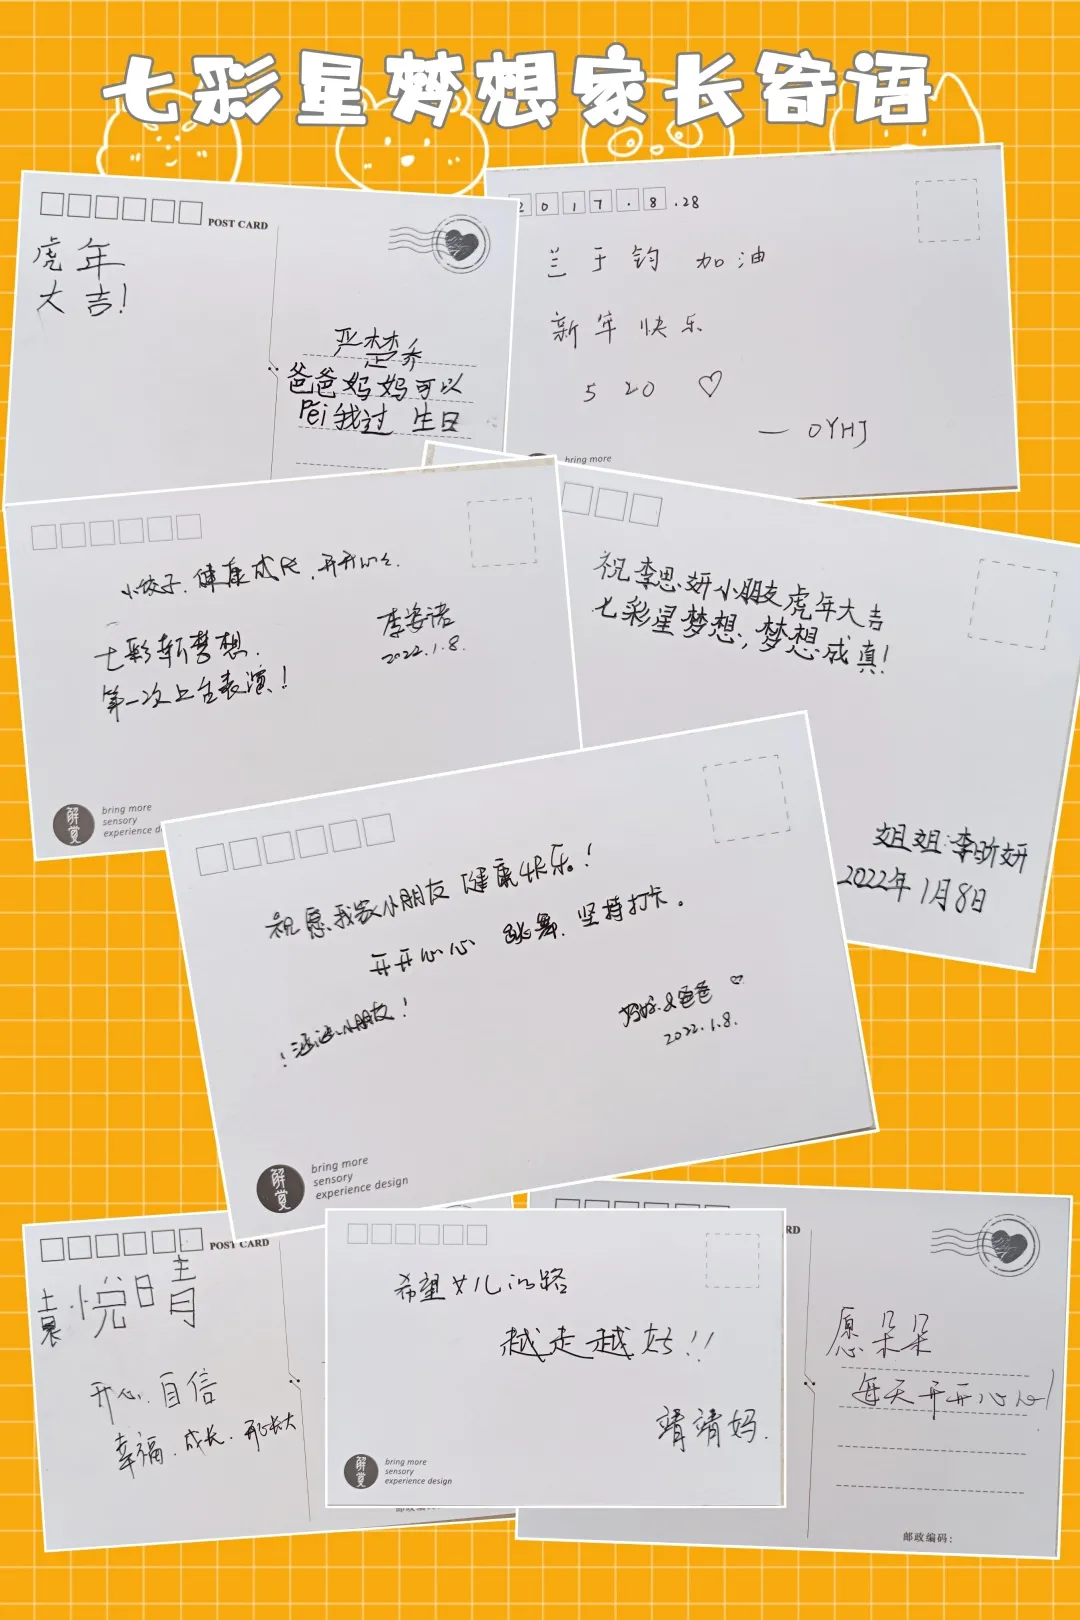 七彩星梦想家长寄语
POST CARD
虎年
大吉!
严楚乔
爸爸妈妈可以
Péi我过 生日
2017.8.28
兰于钧 加油
新年快乐
520 ♡
— OYHJ
bring more
小饺子,健康成长,开开心心
七彩新梦想.
第一次上台表演!
李姿诺
2022.1.8.
解覺
bring more
sensory
experience
祝李思妍小朋友虎年大吉
七彩星梦想,梦想成真!
姐姐:李昕妍
2022年1月8日
祝愿我家小朋友健康快乐。!
开开心心 跳舞.坚持打卡。
小朋友!
爸爸 ♡
2022.1.8.
解覺
bring more
sensory
experience design
POST CARD
袁悦晴
开心.自信
幸福.成长.开心长大
希望女儿的路
越走越好!!
靖靖妈.
解覺
bring more
sensory
experience design
RD
愿朵朵
每天开开心心!
邮政编码: